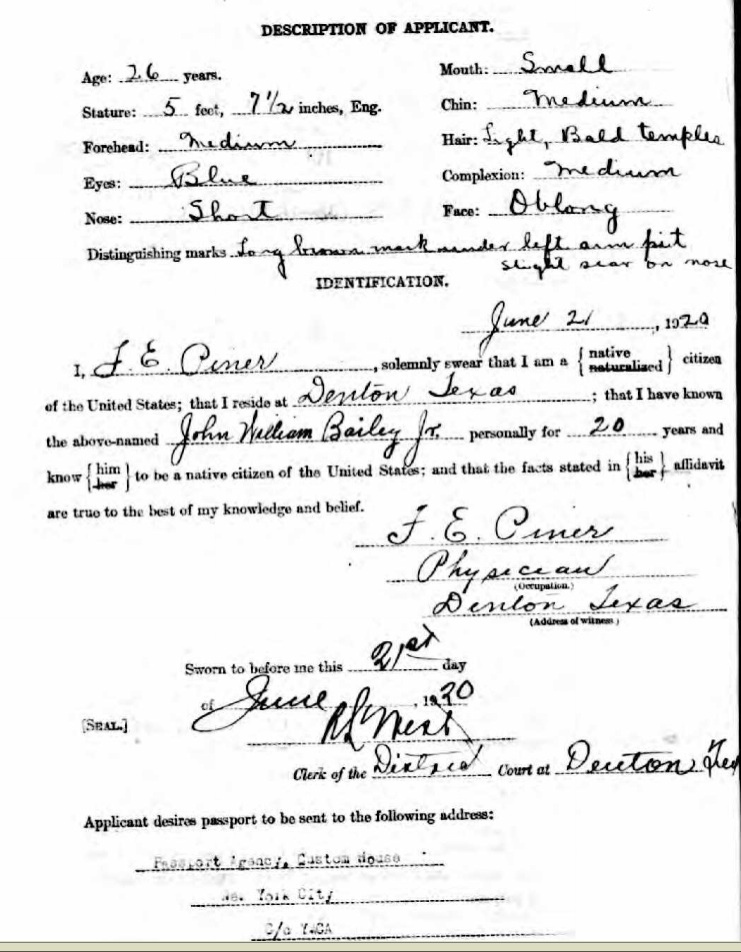 DESCRIPTION OF APPLICANT.
Age: 26 years.
Mouth: Small
Stature: 5 feet, 7½ inches, Eng.
Chin: Medium
Forehead: Medium
Hair: Light, Bald temples
Eyes: Blue
Complexion: Medium
Nose: Short
Face: Oblong
Distinguishing marks Long brown mark under left arm pit
slight scar on nose
IDENTIFICATION.
June 21, 1920
I, F. E. Piner, solemnly swear that I am a {native naturalized} citizen
of the United States; that I reside at Denton Texas; that I have known
the above-named John William Bailey Jr. personally for 20 years and
know {him her} to be a native citizen of the United States; and that the facts stated in {his her} affidavit
are true to the best of my knowledge and belief.
F. E. Piner
Physician
(Occupation.)
Denton Texas
(Address of witness.)
Sworn to before me this 21st day
of June, 1920
[SEAL.]
Clerk of the District Court at Denton Tex
Applicant desires passport to be sent to the following address:
Passport Agency, Custom House
New York City
C/o YMCA